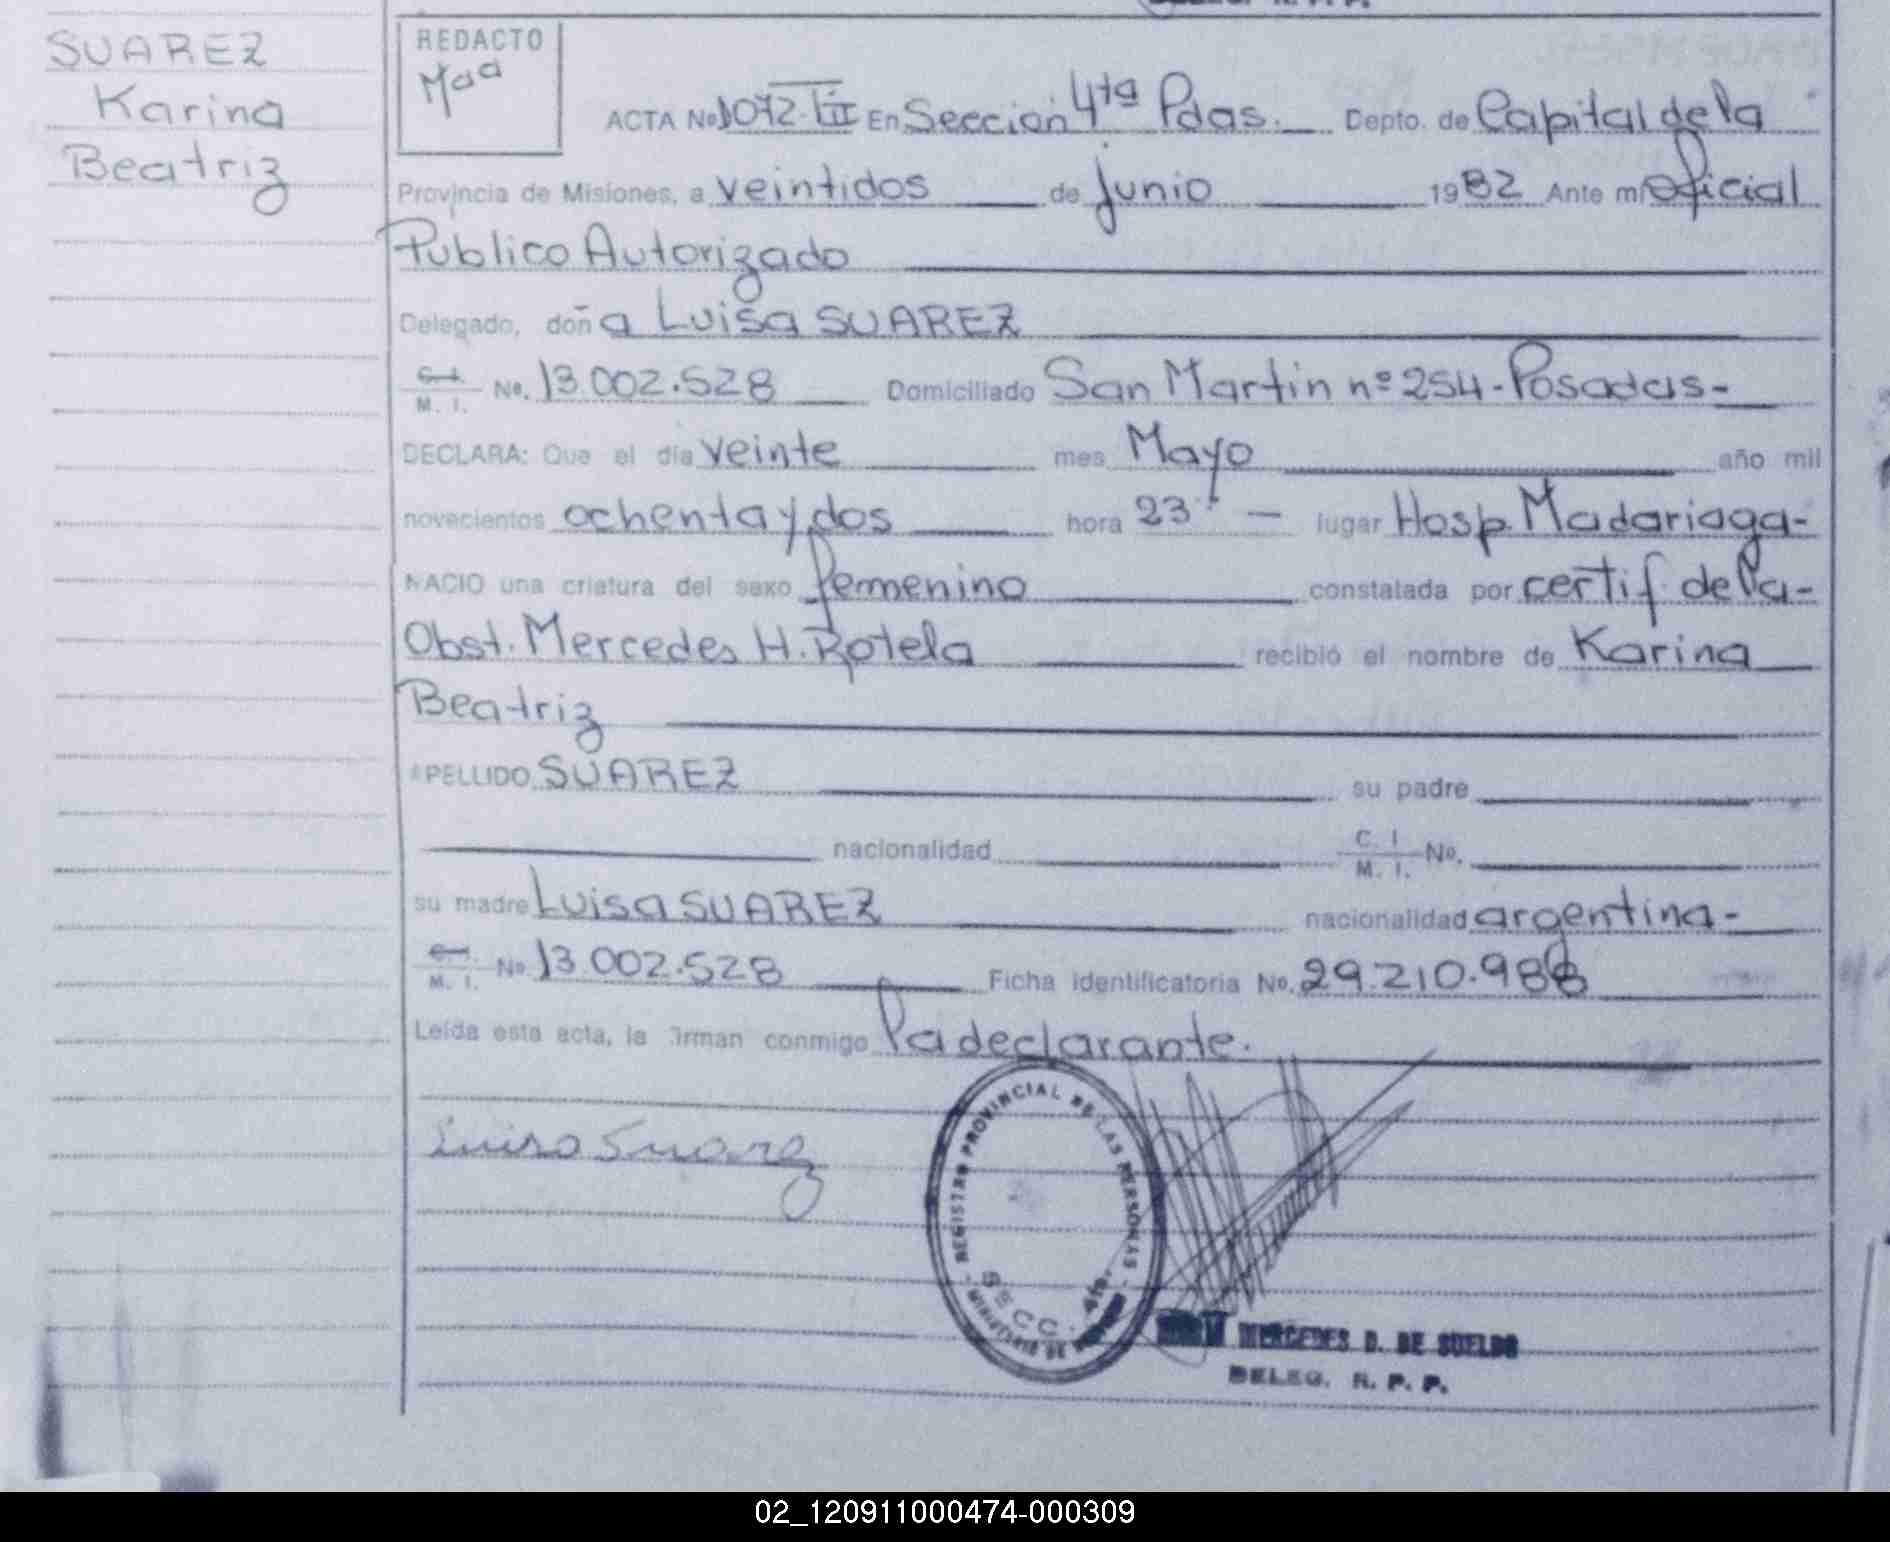 SUAREZ
Karina
Beatriz
REDACTO
Maa
ACTA No 1072. III En Seccion 4ta Pdas. Depto. de Capital de la
Provincia de Misiones, a veintidos de junio 1982 Ante mi Oficial
Publico Autorizado
Delegado, doña Luisa SUAREZ
C.I. M. I. No. 13.002.528 Domiciliado San Martin nº 254-Posadas-
DECLARA: Que el día veinte mes Mayo año mil
novecientos ochenta y dos hora 23 - lugar Hosp. Madariaga-
NACIO una criatura del sexo femenino constatada por certif. de la-
Obst. Mercedes H. Rotela recibió el nombre de Karina
Beatriz
APELLIDO SUAREZ su padre
nacionalidad C. I. M. I. No.
su madre Luisa SUAREZ nacionalidad argentina-
C.I. M. I. No 13.002.528 Ficha identificatoria No. 29.210.988
Leída esta acta, la firman conmigo la declarante.
Luisa Suarez
REGISTRO PROVINCIAL DE LAS PERSONAS
SECC. 4ta.
MINISTERIO DE
MERCEDES D. DE SUELDO
DELEG. R. P. P.
02_120911000474-000309